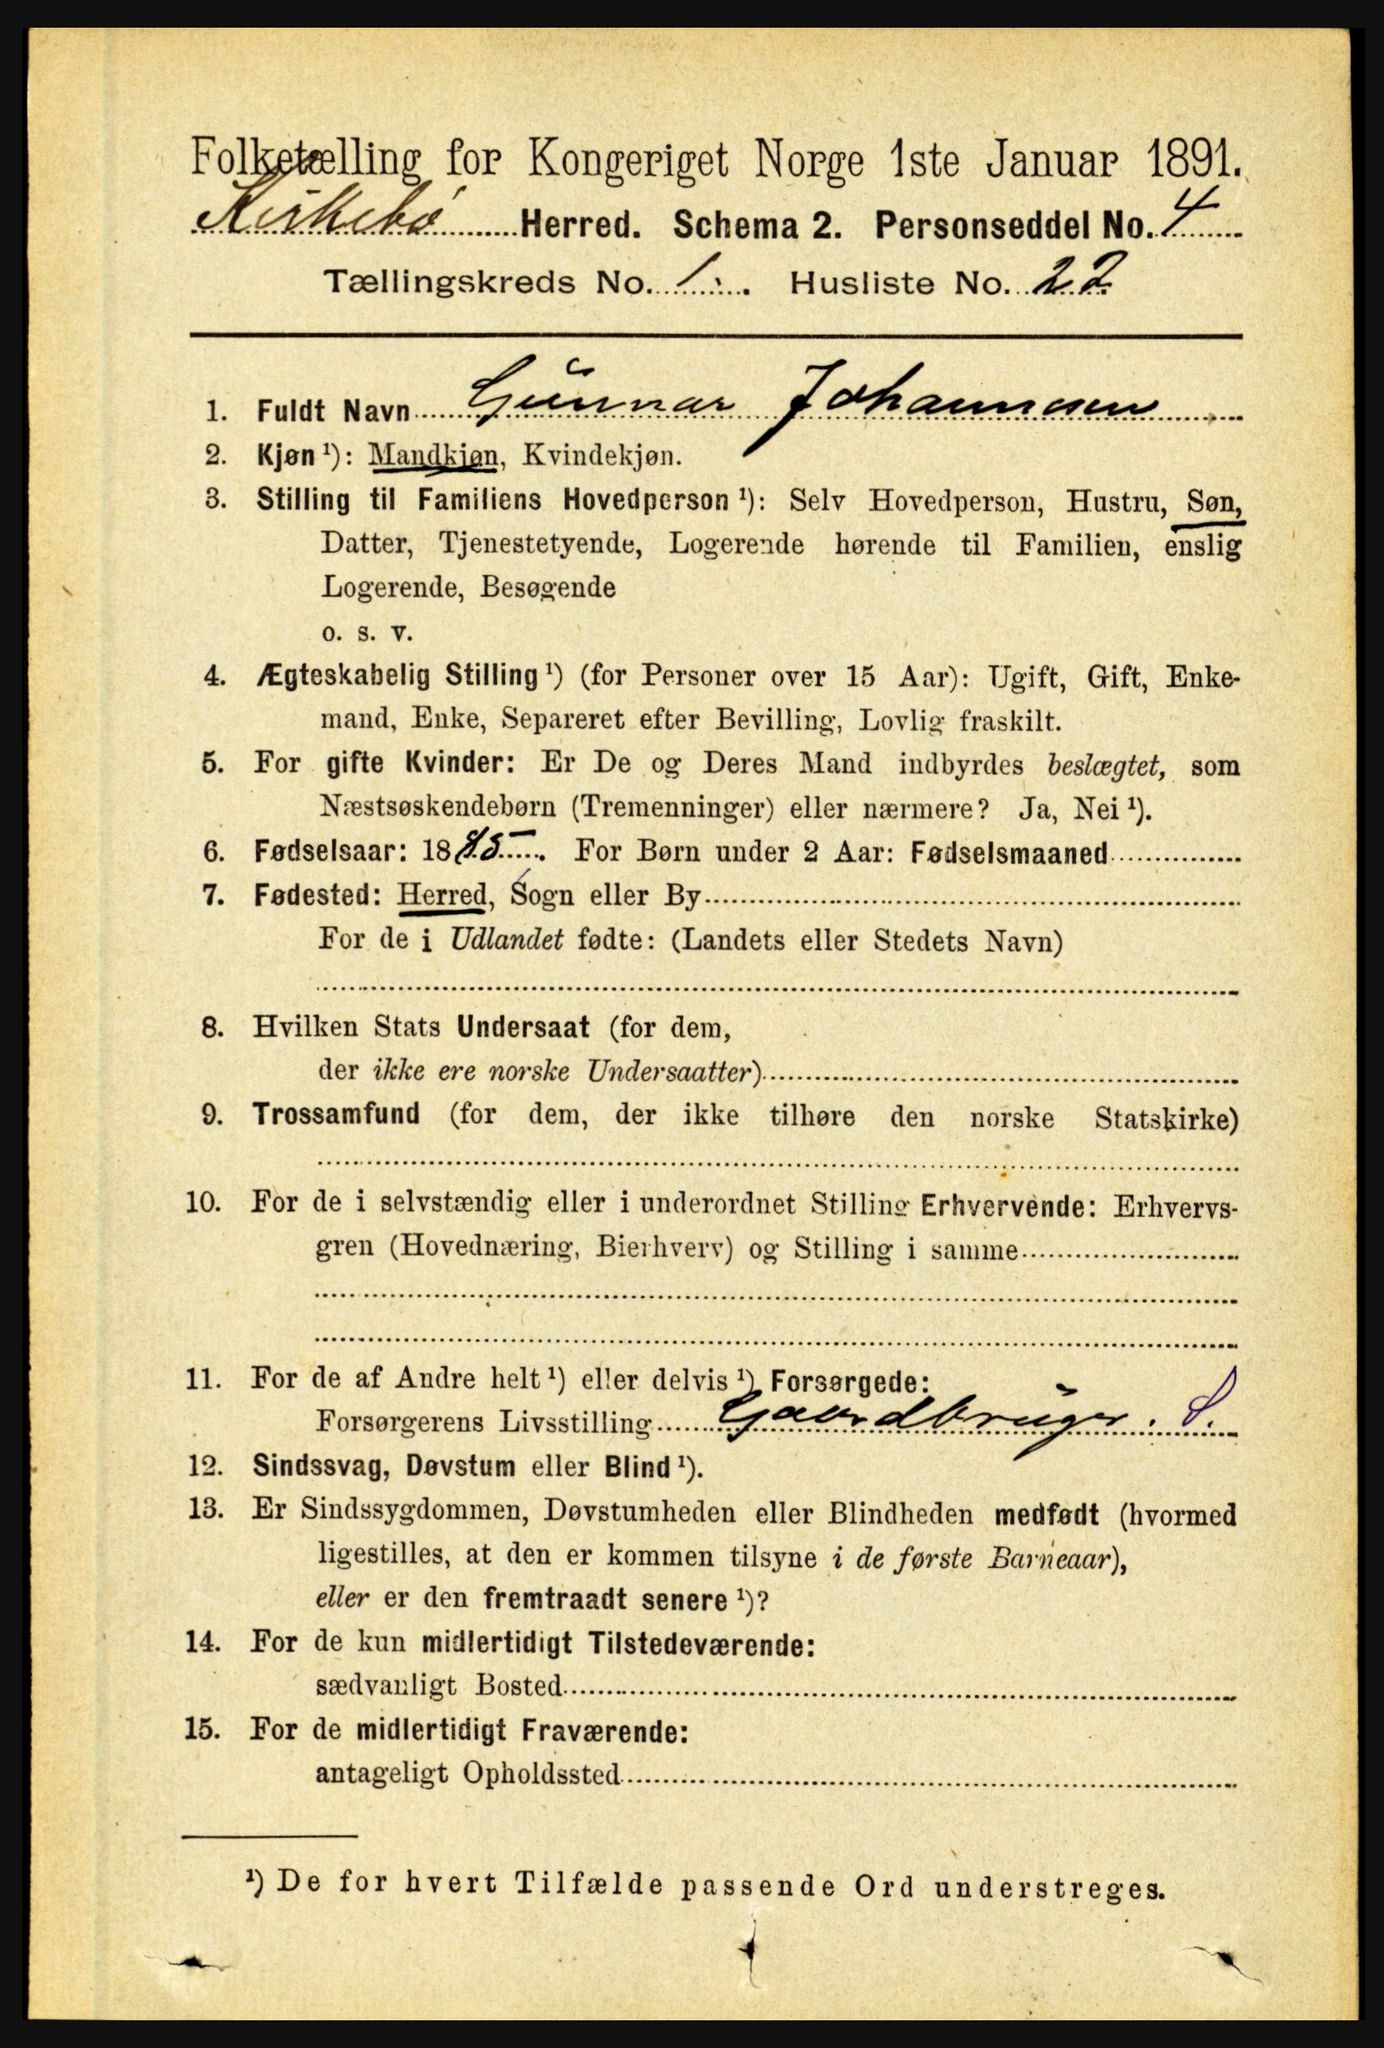 Folketælling for Kongeriget Norge 1ste Januar 1891.
Kirkebø Herred. Schema 2. Personseddel No. 4
Tællingskreds No. 1. Husliste No. 22
1. Fuldt Navn Gunnar Johannesen
2. Kjøn ¹): Mandkjøn, Kvindekjøn.
3. Stilling til Familiens Hovedperson ¹): Selv Hovedperson, Hustru, Søn,
Datter, Tjenestetyende, Logerende hørende til Familien, enslig
Logerende, Besøgende
o. s. v.
4. Ægteskabelig Stilling ¹) (for Personer over 15 Aar): Ugift, Gift, Enke-
mand, Enke, Separeret efter Bevilling, Lovlig fraskilt.
5. For gifte Kvinder: Er De og Deres Mand indbyrdes beslægtet, som
Næstsøskendebørn (Tremenninger) eller nærmere? Ja, Nei ¹).
6. Fødselsaar: 1885. For Børn under 2 Aar: Fødselsmaaned
7. Fødested: Herred, Sogn eller By
For de i Udlandet fødte: (Landets eller Stedets Navn)
8. Hvilken Stats Undersaat (for dem,
der ikke ere norske Undersaatter)
9. Trossamfund (for dem, der ikke tilhøre den norske Statskirke)
10. For de i selvstændig eller i underordnet Stilling Erhvervende: Erhvervs-
gren (Hovednæring, Bierhverv) og Stilling i samme
11. For de af Andre helt ¹) eller delvis ¹) Forsørgede:
Forsørgerens Livsstilling Gaardbruger. S.
12. Sindssvag, Døvstum eller Blind ¹).
13. Er Sindssygdommen, Døvstumheden eller Blindheden medfødt (hvormed
ligestilles, at den er kommen tilsyne i de første Barneaar),
eller er den fremtraadt senere ¹)?
14. For de kun midlertidigt Tilstedeværende:
sædvanligt Bosted
15. For de midlertidigt Fraværende:
antageligt Opholdssted
¹) De for hvert Tilfælde passende Ord understreges.